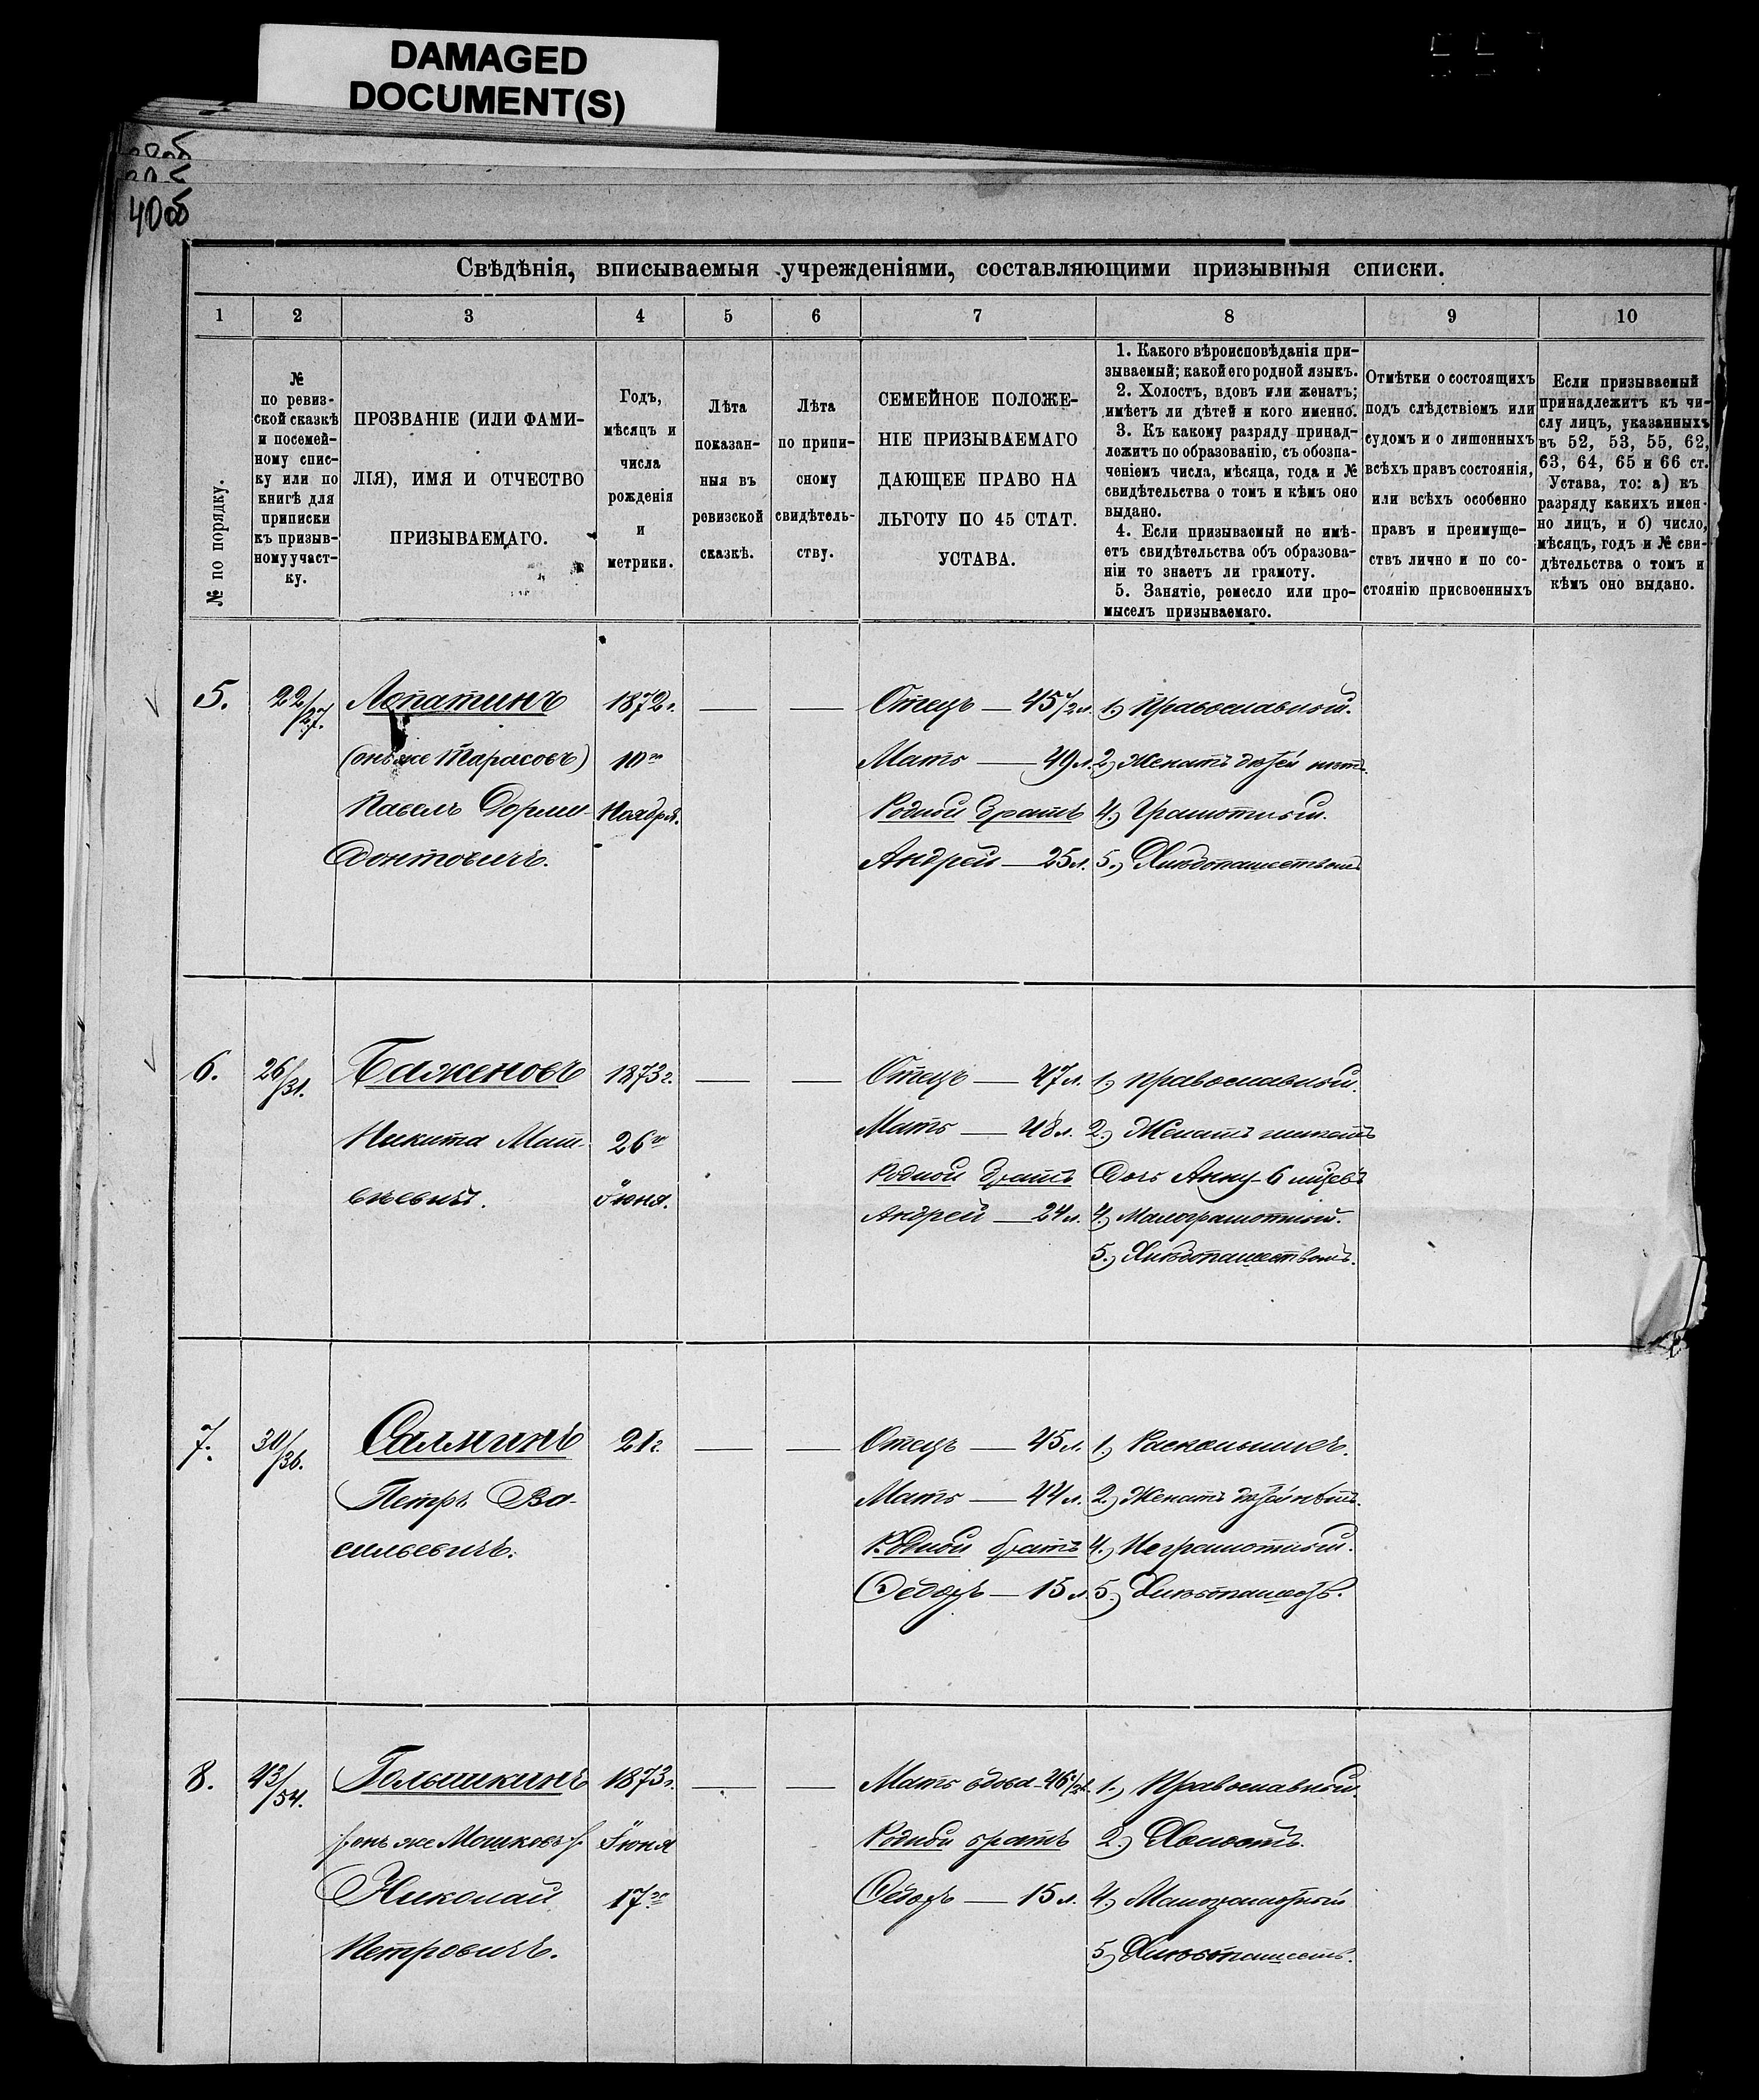 DAMAGED
DOCUMENT(S)
40об
Свѣдѣнія, вписываемыя учрежденіями, составляющими призывныя списки.
1 2 3 4 5 6 7 8 9 10
№ по порядку.
№
по ревиз-
ской сказкѣ
и посемей-
ному спис-
ку или по
книгѣ для
приписки
къ призыв-
ному участ-
ку.
ПРОЗВАНІЕ (ИЛИ ФАМИ-
ЛІЯ), ИМЯ И ОТЧЕСТВО
ПРИЗЫВАЕМАГО.
Годъ,
мѣсяцъ и
числа
рожденія
и
метрики.
Лѣта
показан-
ныя въ
ревизской
сказкѣ.
Лѣта
по припи-
сному
свидѣтель-
ству.
СЕМЕЙНОЕ ПОЛОЖЕ-
НІЕ ПРИЗЫВАЕМАГО
ДАЮЩЕЕ ПРАВО НА
ЛЬГОТУ ПО 45 СТАТ.
УСТАВА.
1. Какого вѣроисповѣданія при-
зываемый; какой его родной языкъ.
2. Холостъ, вдовъ или женатъ;
имѣетъ ли дѣтей и кого именно.
3. Къ какому разряду принад-
лежитъ по образованію, съ обозна-
ченіемъ числа, мѣсяца, года и №
свидѣтельства о томъ и кѣмъ оно
выдано.
4. Если призываемый не имѣ-
етъ свидѣтельства объ образова-
ніи то знаетъ ли грамоту.
5. Занятіе, ремесло или про-
мыселъ призываемаго.
Отмѣтки о состоящихъ
подъ слѣдствіемъ или
судомъ и о лишонныхъ
всѣхъ правъ состоянія,
или всѣхъ особенно
правъ и преимуще-
ствъ лично и по со-
стоянію присвоенныхъ
Если призываемый
принадлежитъ къ чи-
слу лицъ, указанныхъ
въ 52, 53, 55, 62,
63, 64, 65 и 66 ст.
Устава, то: а) къ
разряду какихъ имен-
но лицъ, и б) число,
мѣсяцъ, годъ и № сви-
дѣтельства о томъ и
кѣмъ оно выдано.
5.
22/27.
Лопатинъ
(онъ же Тарасовъ)
Павелъ Дорми-
донтовичъ.
1872г.
10го
Ноября.
— —
Отецъ — 45 1/2 л.
Мать — 49 л.
Родной братъ
Андрей — 25 л.
1.) Православный.
2.) Женатъ дѣтей нѣтъ.
4.) Грамотный.
5.) Хлѣбопашествомъ
6.
26/31.
Баженовъ
Никита Мат-
вѣевичъ.
1873г.
26го
Іюня.
— —
Отецъ — 47 л.
Мать — 48 л.
Родной братъ
Андрей — 24 л.
1.) Православный.
2.) Женатъ имѣетъ
Дочь Анну - 6 мѣсѣцъ
4.) Малограмотный.
5.) Хлѣбопашествомъ.
7.
30/36.
Салминъ
Петръ Ва-
сильевичъ.
21г.
— —
Отецъ — 45 л.
Мать — 44 л.
Родной братъ
Ѳедоръ — 15 л.
1.) Раскольникъ.
2.) Женатъ дѣтей нѣтъ.
4.) Неграмотный.
5.) Хлѣбопашест.
8.
43/54.
Голышкинъ
(онъ же Мошковъ)
Николай
Петровичъ.
1873г.
Іюня
17го
— —
Мать вдова - 46 1/2 л.
Родной братъ
Ѳедоръ — 15 л.
1.) Православный.
2.) Холостъ.
4.) Малограмотный
5.) Хлѣбопашеств.